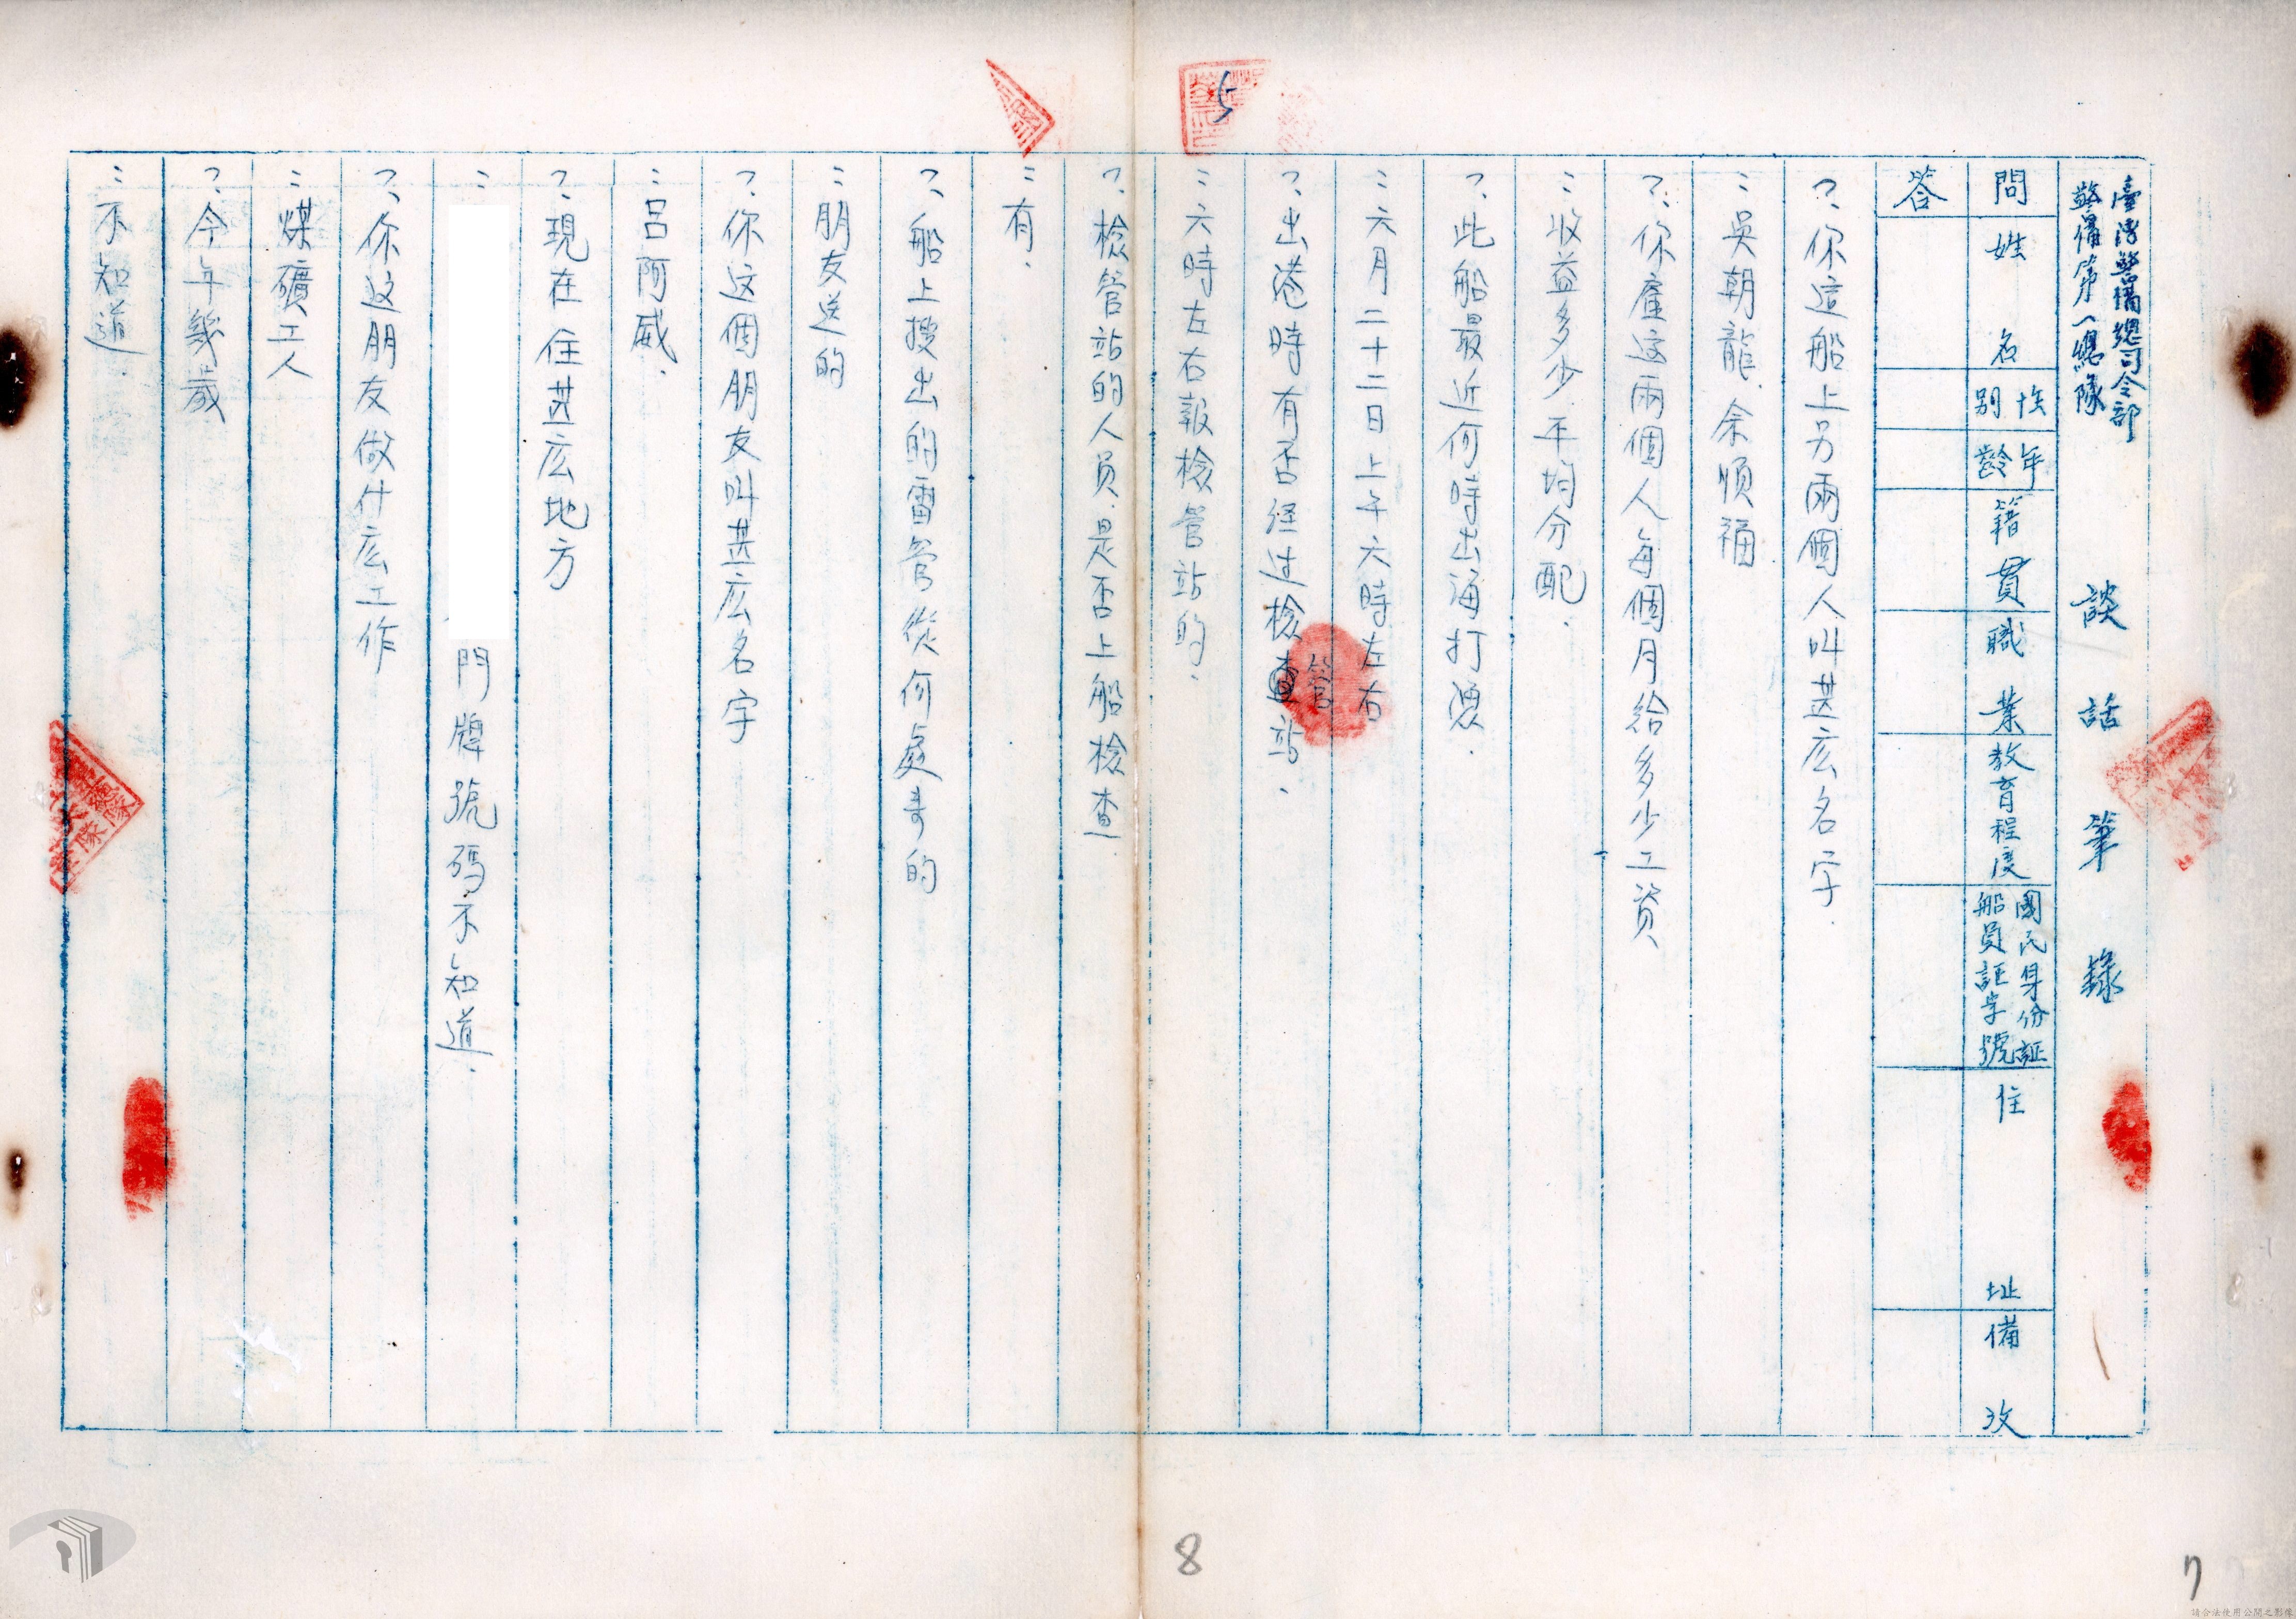 臺灣警備總司令部
警備第一總隊
談話筆錄
問 姓名 性別 年齡 籍貫 職業 教育程度 國民身份証船員証字號 住址 備攷
答
?、你這船上另兩個人叫甚庅名字.
:吳朝龍、余順福
?、你雇这兩個人每個月給多少工資
:收益多少平均分配.
?、此船最近何時出海打漁.
:六月二十二日上午六時左右
?、出港時有否经过檢管站.
:六時左右報檢管站的.
?、檢管站的人員是否上船檢查
:有.
?、船上搜出的雷管從何處来的
:朋友送的
?、你这個朋友叫甚庅名字
:呂阿威.
?、現在住甚庅地方
: 門牌號碼不知道.
?、你这朋友做什庅工作
:煤礦工人
?、今年幾歲
:不知道.
5
8
7
請合法使用公開之影像